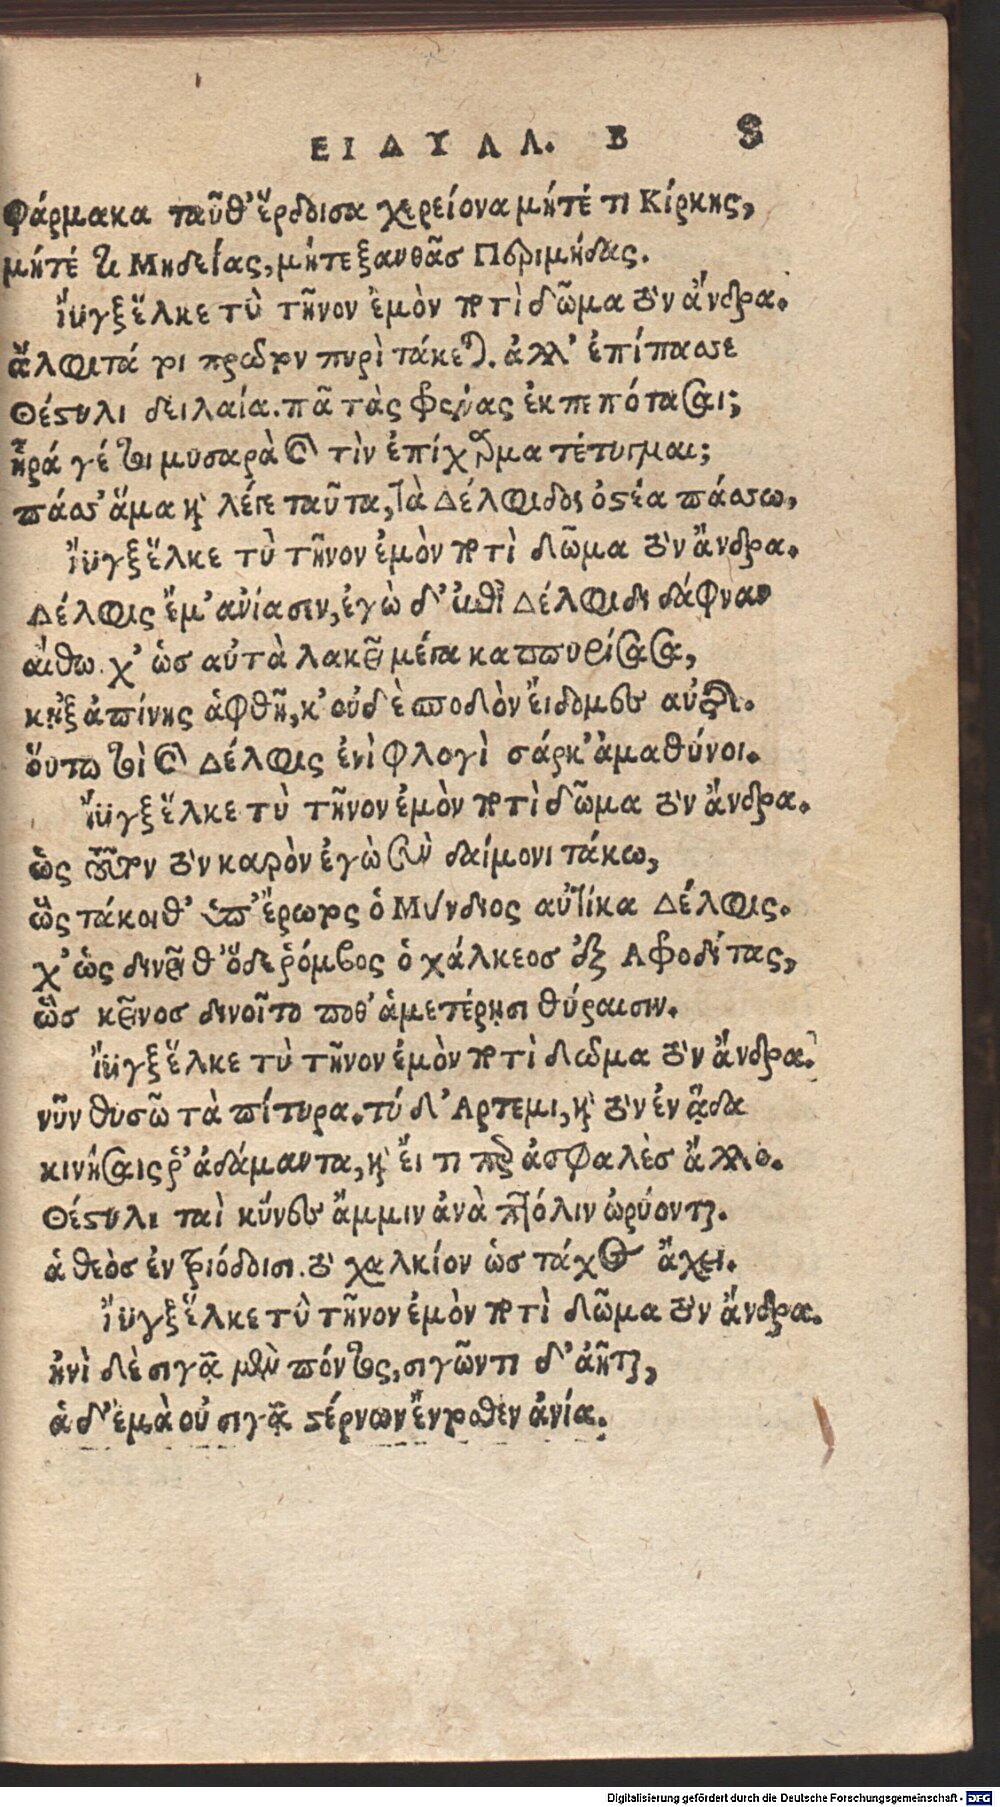 ΕΙΔΥΛΛ. Β 8
Φάρμακα ταῦθ' ἔρδοισα χερείονα μήτέ τι Κίρκης,
μήτέ τι Μηδείας, μήτε ξανθᾶς Περιμήδας.
ἴϋγξ ἕλκε τὺ τῆνον ἐμὸν ποτὶ δῶμα τὸν ἄνδρα.
ἄλφιτά τοι πρῶτον πυρὶ τάκεται. ἀλλ' ἐπίπασσε
Θέστυλι δειλαία. πᾶ τὰς φρένας ἐκπεπότασαι;
ἦρά γέ τοι μυσαρὰ καὶ τὶν ἐπίχαρμα τέτυγμαι;
πάσσ' ἅμα καὶ λέγε ταῦτα, τὰ Δέλφιδος ὀστέα πάσσω,
ἴϋγξ ἕλκε τὺ τῆνον ἐμὸν ποτὶ δῶμα τὸν ἄνδρα.
Δέλφις ἔμ' ἀνίασιν, ἐγὼ δ' ἐπὶ Δέλφιδι δάφναν
αἴθω. χ' ὡς αὐτὰ λακεῖ μέγα καππυρίσασα,
κἠξαπίνης ἁφθῆ, κ' οὐδὲ σποδὸν εἴδομεν αὐτᾶς.
οὕτω τοὶ καὶ Δέλφις ἐνὶ φλογὶ σάρκ' ἀμαθύνοι.
ἴϋγξ ἕλκε τὺ τῆνον ἐμὸν ποτὶ δῶμα τὸν ἄνδρα.
ὡς τοῦτον τὸν καρὸν ἐγὼ σὺν δαίμονι τάκω,
ὣς τάκοιθ' ὑπ' ἔρωτος ὁ Μύνδιος αὐτίκα Δέλφις.
χ' ὡς δινεῖθ' ὅδε ῥόμβος ὁ χάλκεος ἐξ Αφροδίτας,
ὣς κεῖνος δινοῖτο ποθ' ἁμετέρῃσι θύραισιν.
ἴϋγξ ἕλκε τὺ τῆνον ἐμὸν ποτὶ δῶμα τὸν ἄνδρα.
νῦν θυσῶ τὰ πίτυρα. τύ δ' Αρτεμι, καὶ τὸν ἐν ᾅδα
κινήσαις ῥ' ἀδάμαντα, καὶ εἴ τι περ ἀσφαλὲς ἄλλο.
Θέστυλι ταὶ κύνες ἄμμιν ἀνὰ πτόλιν ὠρύονται.
ἁ θεὸς ἐν τριόδοισι. τὸ χαλκίον ὡς τάχος ἄχει.
ἴϋγξ ἕλκε τὺ τῆνον ἐμὸν ποτὶ δῶμα τὸν ἄνδρα.
ἠνὶ δὲ σιγᾷ μὲν πόντος, σιγῶντι δ' ἀῆται,
ἁ δ' ἐμὰ οὐ σιγᾷ στέρνων ἔντοθεν ἀνία.
Digitalisierung gefördert durch die Deutsche Forschungsgemeinschaft - DFG